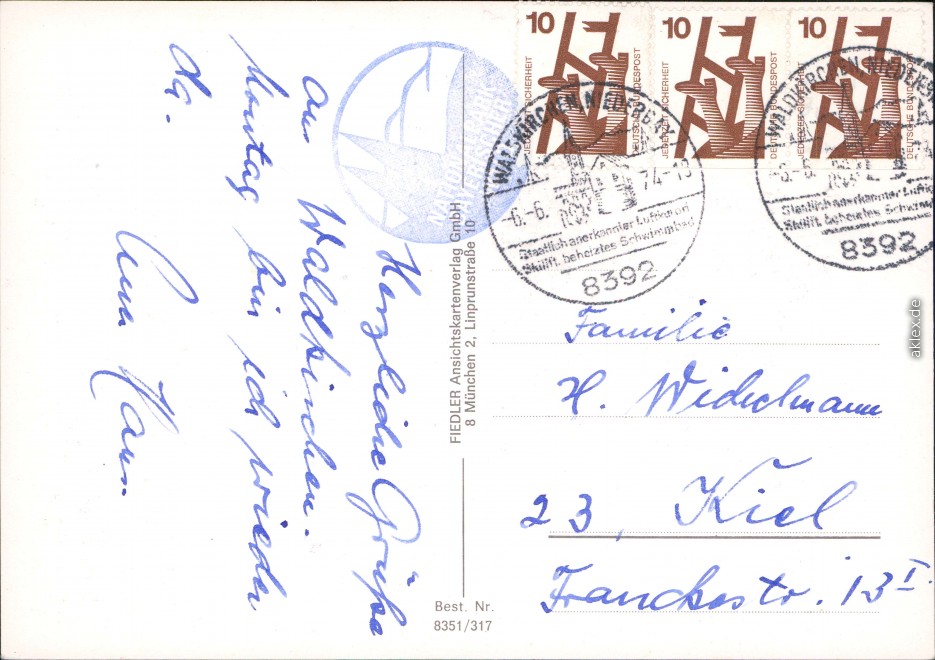 Herzliche Grüße
aus Waldkirchen.
Montag bin ich wieder
da.
FIEDLER Ansichtskartenverlag GmbH
8 München 2, Linprunstraße 10
Best. Nr.
8351/317
NATIONALPARK
BAYERISCHER
10
JEDERZEIT SICHERHEIT
DEUTSCHE BUNDESPOST
10
JEDERZEIT SICHERHEIT
DEUTSCHE BUNDESPOST
10
JEDERZEIT SICHERHEIT
DEUTSCHE BUNDESPOST
WALDKIRCHEN, NIEDERBAY
-6.-6. 74-18
Staatlich anerkannter Luftkurort
Skilift, beheiztes Schwimmbad
8392
WALDKIRCHEN, NIEDERB
-6.-6.
Staatlich anerkannter Luftkur
Skilift, beheiztes Schwimm
8392
Familie
H. Widelmann
23, Kiel
Franckestr. 13 I
aklex.de